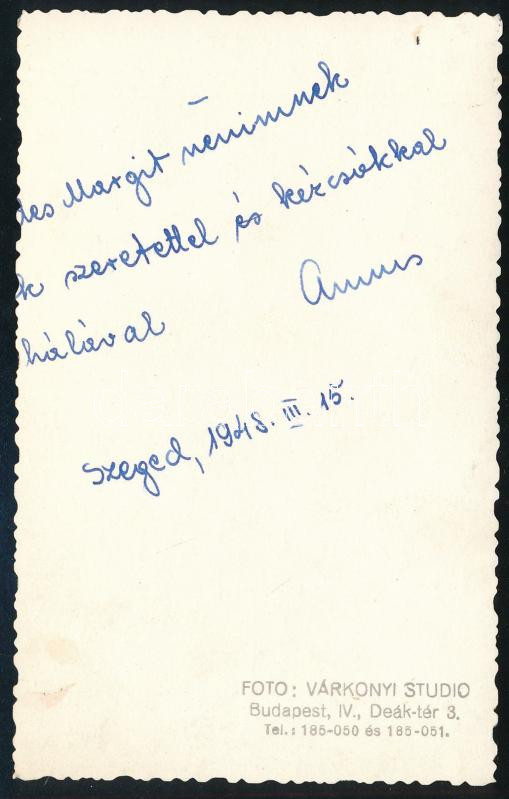 des Margit nénimnek
k szeretettel és kézcsókkal
hálával Annus
Szeged, 1948. III. 15.
FOTO: VÁRKONYI STUDIO
Budapest, IV., Deák-tér 3.
Tel.: 185-050 és 185-051.